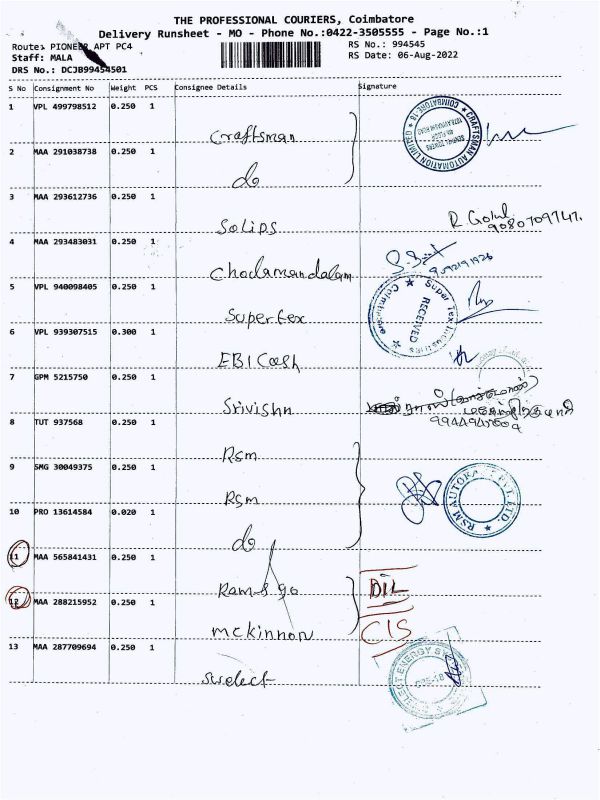 THE PROFESSIONAL COURIERS, Coimbatore
Delivery Runsheet - MO - Phone No.:0422-3505555 - Page No.:1
Route: PIONEER APT PC4
RS No.: 994545
Staff: MALA
RS Date: 06-Aug-2022
DRS No.: DCJB99454501
S No Consignment No Weight PCS Consignee Details Signature
1 VPL 499798512 0.250 1 Craftsman
CRAFTSMAN AUTOMATION LIMITED COIMBATORE-18
2 MAA 291038738 0.250 1 do
3 MAA 293612736 0.250 1 Solips R. Gokul 9080709747.
4 MAA 293483031 0.250 1 Cholamandalam
5 VPL 940098405 0.250 1 Supertex
Super Tex Industries Coimbatore RECEIVED
6 VPL 939307515 0.300 1 EBI Cash
7 GPM 5215750 0.250 1 Srivishn
8 TUT 937568 0.250 1 Rsm
9 SMG 30049375 0.250 1 Rsm
RSM AUTOKAST PVT. LTD.
10 PRO 13614584 0.020 1 do
11 MAA 565841431 0.250 1 Ram & go BIL
12 MAA 288215952 0.250 1 mckinnon CIS
13 MAA 287709694 0.250 1 swelect